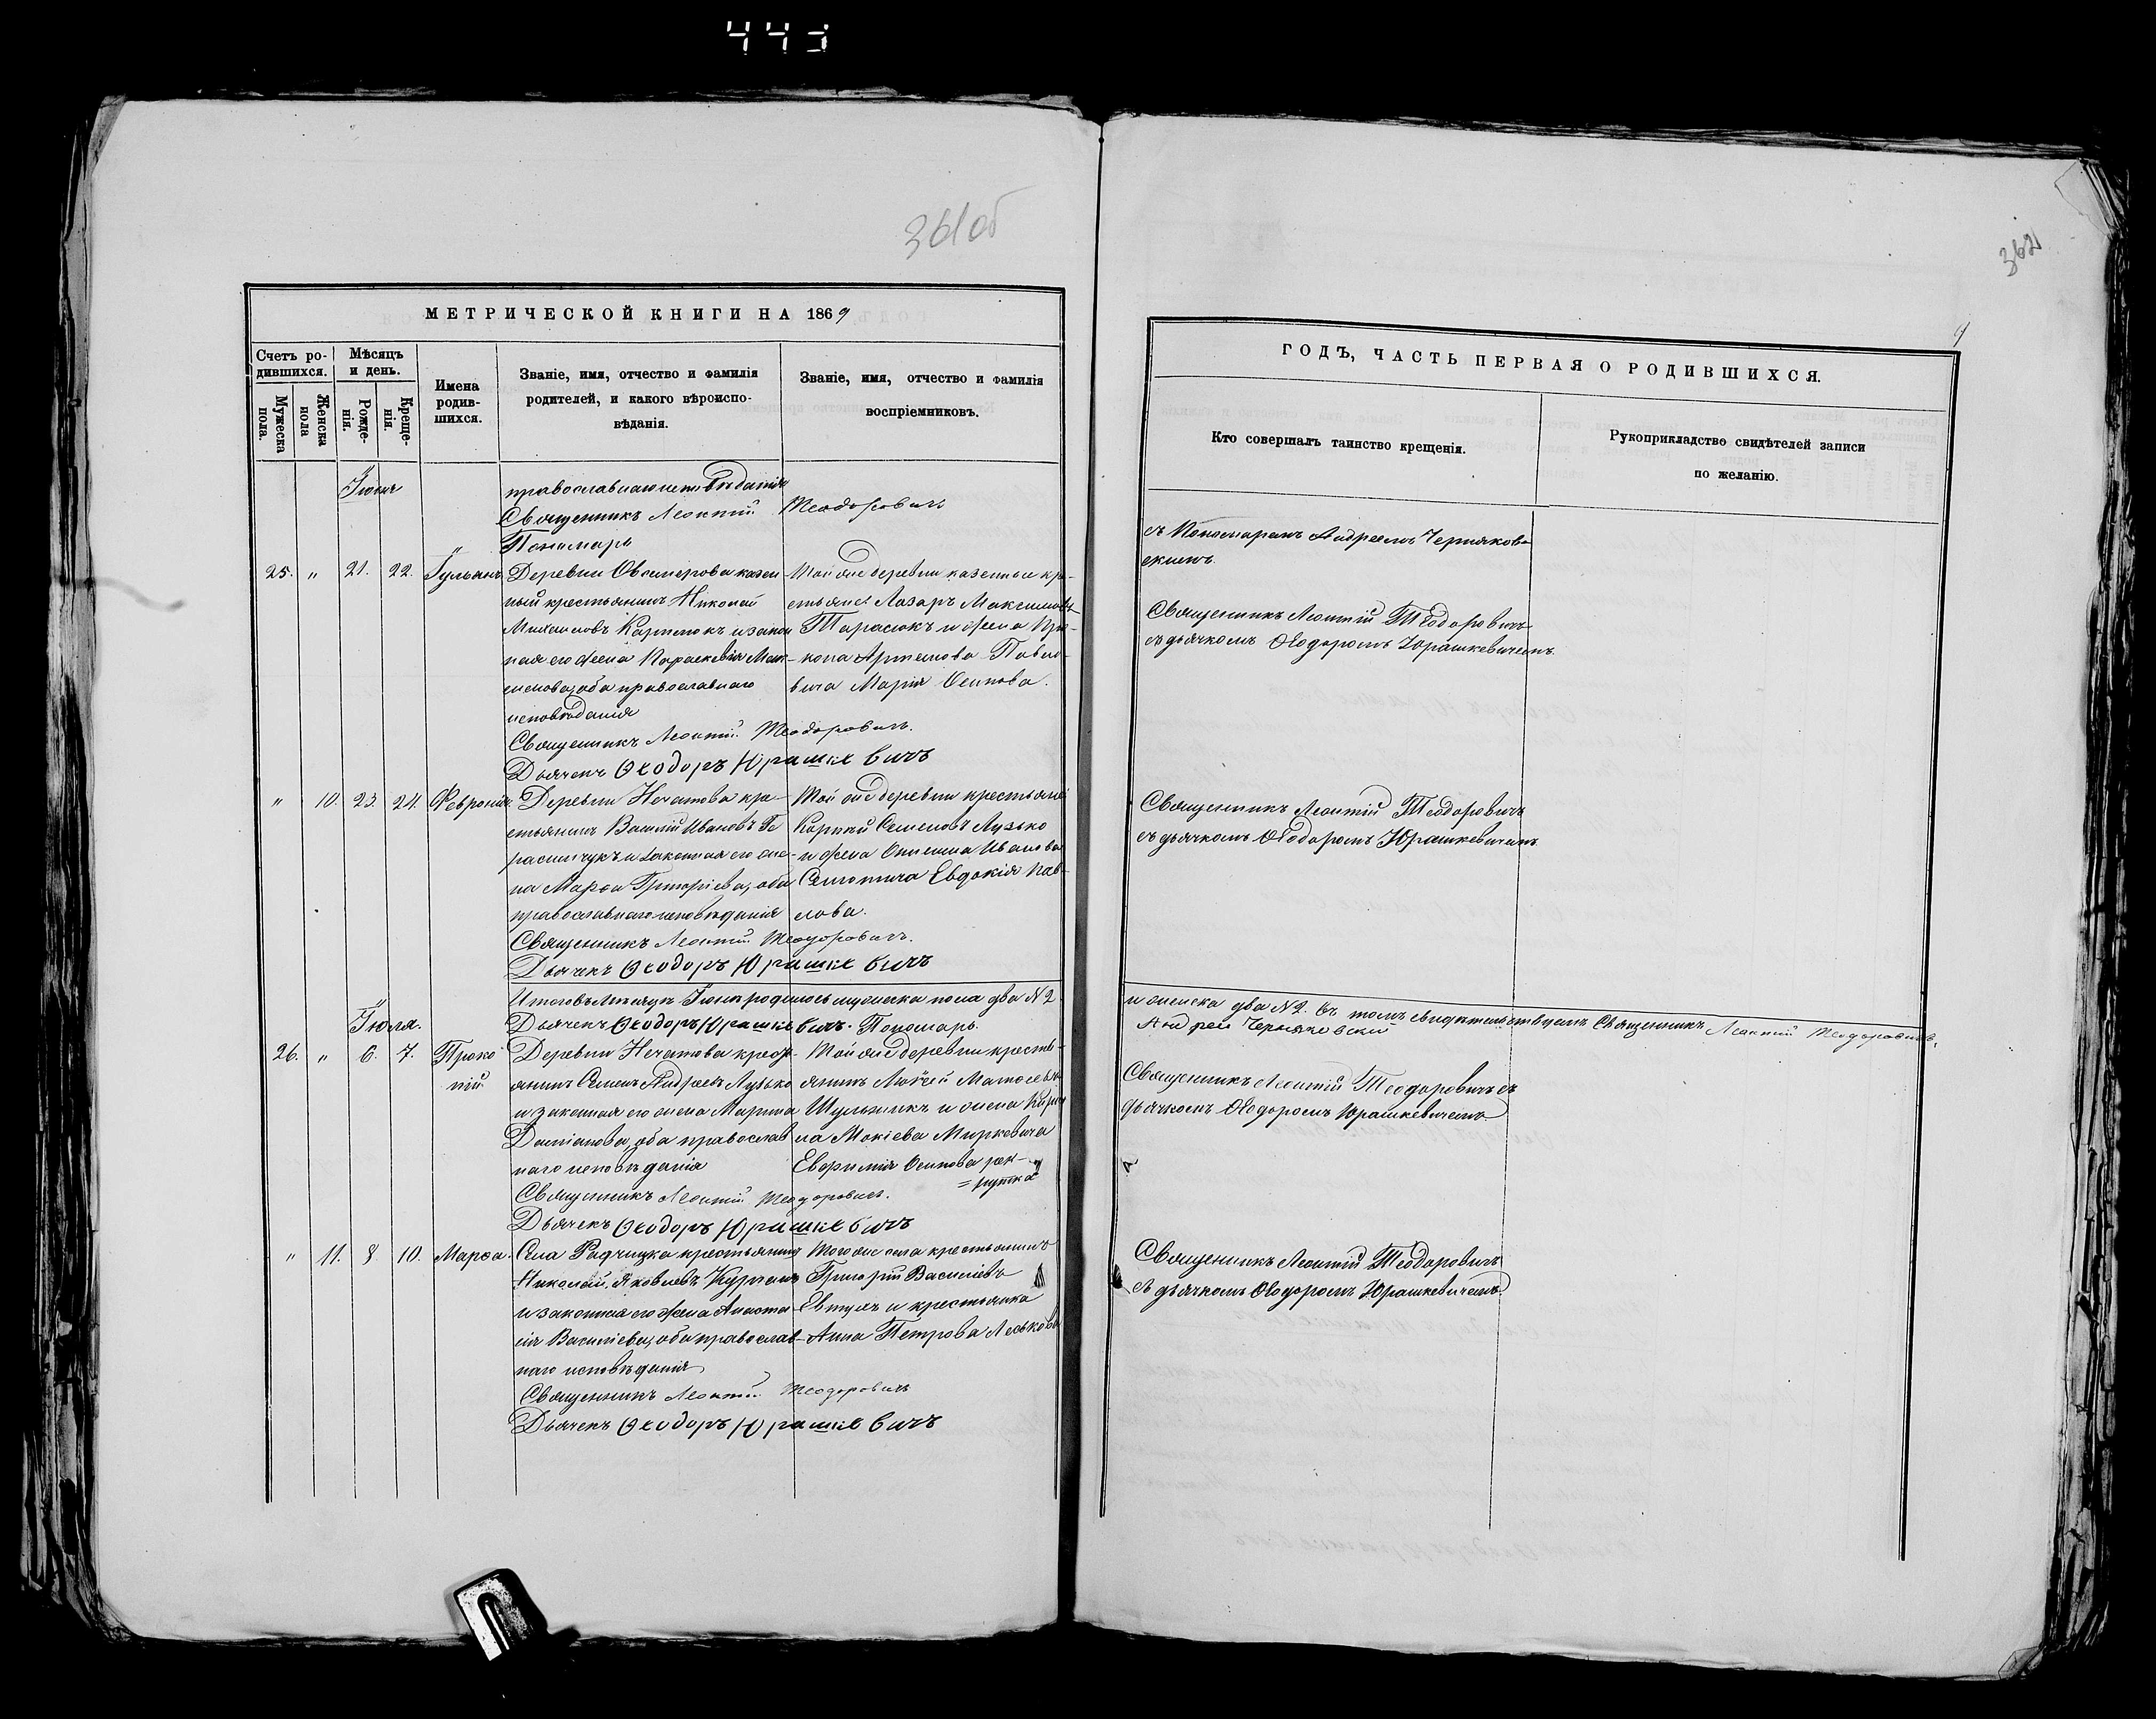 443
361об
МЕТРИЧЕСКОЙ КНИГИ НА 1869
Счетъ ро-
дившихся.
Мужеска
пола.
Женска
пола
Мѣсяцъ
и день.
Рожде-
нія.
Креще-
нія.
Имена
родив-
шихся.
Званіе, имя, отчество и фамилія
родителей, и какого вѣроиспо-
вѣданія.
Званіе, имя, отчество и фамилія
воспріемниковъ.
Іюнь
православнаго исповѣданія
Священникъ Леонтій Теодоровичъ
Пономарь
25. " 21. 22. Іульянъ.
Деревни казен
ный крестьянинъ Николай
Михаиловъ и закон
ная его жена Параскевія Мак-
симова, оба православнаго
исповѣданія
Той же деревни казенные кре-
стьяне Лазарь Максимовъ
Тарасюкъ и жена Про-
копа Артемова Павло-
вича Марія Осипова.
Священникъ Леонтій Теодоровичъ.
Дьячекъ Ѳеодоръ Юрашкевичъ
" 10. 23. 24. Февронія.
Деревни Нечатова кре-
стьянинъ Василій Ивановъ Ге
расимчукъ и законная его же-
на Марѳа Григоріева, оба
православнаго исповѣданія
Той же деревни крестьяне
Карпъ Семеновъ Лузько
и жена Ивановна
Евдокія Пав-
лова.
Священникъ Леонтій Теодоровичъ.
Дьячекъ Ѳеодоръ Юрашкевичъ
Итого въ мѣсяцѣ Іюнѣ родилось мужеска пола два №2
Дьячекъ Ѳеодоръ Юрашкевичъ. Пономарь
Іюля.
26. " 6. 7. Проко
пій.
Деревни Нечатова крест-
янинъ Семенъ Андреевъ Лузько
и законная его жена Марина
Даміанова, оба православ
наго исповѣданія
Той же деревни кресть-
янинъ Моѵсей
и жена
на Мокіева Мирковича
Евфимія Осипова рек-
=рутка
Священникъ Леонтій Теодоровичъ.
Дьячекъ Ѳеодоръ Юрашкевичъ
" 11. 8 10. Марѳа.
Села Радчицка крестьянинъ
Николай Яковлевъ
и законная его жена Анаста
сія Василіева, оба православ-
наго исповѣданія
Того же села крестьянинъ
Григорій Василіевъ
Евтухъ и крестьянка
Анна Петрова
Священникъ Леонтій Теодоровичъ
Дьячекъ Ѳеодоръ Юрашкевичъ
362
9
ГОДЪ, ЧАСТЬ ПЕРВАЯ О РОДИВШИХСЯ.
Кто совершалъ таинство крещенія.
Рукоприкладство свидѣтелей записи
по желанію.
съ Пономаремъ Андреемъ Черняков-
скимъ.
Священникъ Леонтій Теодоровичъ
съ дьячкомъ Ѳеодоромъ Юрашкевичемъ.
Священникъ Леонтій Теодоровичъ
съ дьячкомъ Ѳеодоромъ Юрашкевичемъ
и женска два №2. въ томъ свидѣтельствуемъ Священникъ Леонтій Теодоровичъ,
Андрей Черняковскій
Священникъ Леонтій Теодоровичъ съ
дьячкомъ Ѳеодоромъ Юрашкевичемъ
Священникъ Леонтій Теодоровичъ
съ дьячкомъ Ѳеодоромъ Юрашкевичемъ